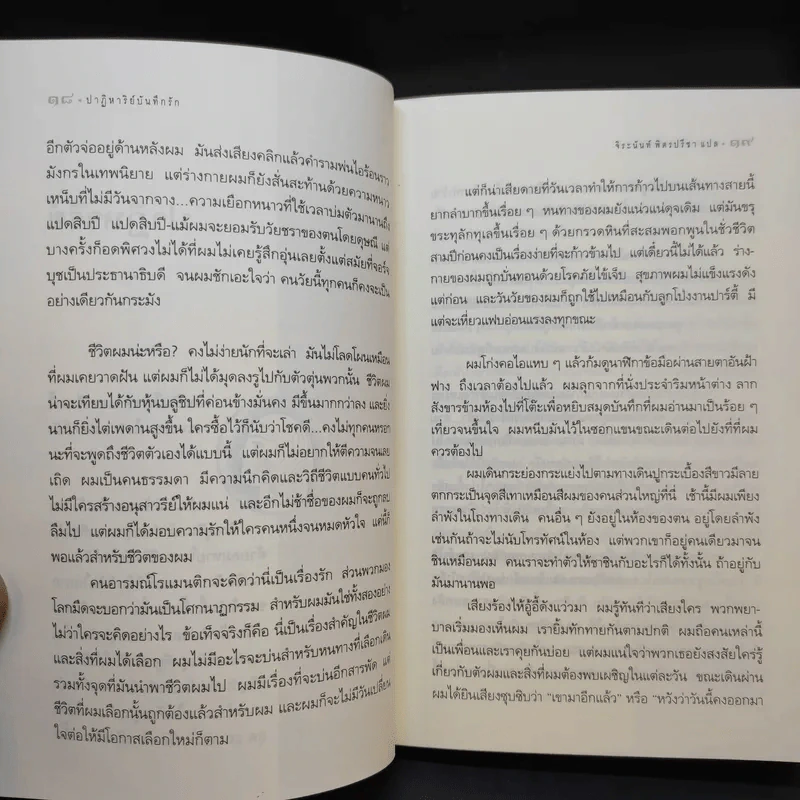 ๑๘ • ปาฏิหาริย์บันทึกรัก
อีกตัวจ่ออยู่ด้านหลังผม มันส่งเสียงคลิกแล้วคำรามพ่นไอร้อนราว
มังกรในเทพนิยาย แต่ร่างกายผมก็ยังสั่นสะท้านด้วยความหนาว
เหน็บที่ไม่มีวันจากจาง...ความเยือกหนาวที่ใช้เวลาบ่มตัวมานานถึง
แปดสิบปี แปดสิบปี-แม้ผมจะยอมรับวัยชราของตนโดยดุษณี แต่
บางครั้งก็อดพิศวงไม่ได้ที่ผมไม่เคยรู้สึกอุ่นเลยตั้งแต่สมัยที่จอร์จ
บุชเป็นประธานาธิบดี จนผมชักเอะใจว่า คนวัยนี้ทุกคนก็คงจะเป็น
อย่างเดียวกันกระมัง
ชีวิตผมน่ะหรือ? คงไม่ง่ายนักที่จะเล่า มันไม่โลดโผนเหมือน
ที่ผมเคยวาดฝัน แต่ผมก็ไม่ได้มุดลงรูไปกับตัวตุ่นพวกนั้น ชีวิตผม
น่าจะเทียบได้กับหุ้นบลูชิปที่ค่อนข้างมั่นคง มีขึ้นมากกว่าลง และยิ่ง
นานก็ยิ่งไต่เพดานสูงขึ้น ใครซื้อไว้ก็นับว่าโชคดี...คงไม่ทุกคนหรอก
ที่จะพูดถึงชีวิตตัวเองได้แบบนี้ แต่ผมก็ไม่อยากให้ตีความจนเลย
เถิด ผมเป็นคนธรรมดา มีความนึกคิดและวิถีชีวิตแบบคนทั่วไป
ไม่มีใครสร้างอนุสาวรีย์ให้ผมแน่ และอีกไม่ช้าชื่อของผมก็จะถูกลบ
ลืมไป แต่ผมก็ได้มอบความรักให้ใครคนหนึ่งจนหมดหัวใจ แค่นี้ก็
พอแล้วสำหรับชีวิตของผม
คนอารมณ์โรแมนติกจะคิดว่านี่เป็นเรื่องรัก ส่วนพวกมอง
โลกมืดจะบอกว่ามันเป็นโศกนาฏกรรม สำหรับผมมันใช่ทั้งสองอย่าง
ไม่ว่าใครจะคิดอย่างไร ข้อเท็จจริงก็คือ นี่เป็นเรื่องสำคัญในชีวิตผม
และสิ่งที่ผมได้เลือก ผมไม่มีอะไรจะบ่นสำหรับหนทางที่เลือกเดิน
รวมทั้งจุดที่มันนำพาชีวิตผมไป ผมมีเรื่องที่จะบ่นอีกสารพัด แต่
ชีวิตที่ผมเลือกนั้นถูกต้องแล้วสำหรับผม และผมก็จะไม่มีวันเปลี่ยน
ใจต่อให้มีโอกาสเลือกใหม่ก็ตาม
จิระนันท์ พิตรปรีชา แปล • ๑๙
แต่ก็น่าเสียดายที่วันเวลาทำให้การก้าวไปบนเส้นทางสายนี้
ยากลำบากขึ้นเรื่อย ๆ หนทางของผมยังแน่วแน่ดุจเดิม แต่มันขรุ
ขระทุลักทุเลขึ้นเรื่อย ๆ ด้วยกรวดหินที่สะสมพอกพูนในชั่วชีวิต
สามปีก่อนคงเป็นเรื่องง่ายที่จะก้าวข้ามไป แต่เดี๋ยวนี้ไม่ได้แล้ว ร่าง-
กายของผมถูกบั่นทอนด้วยโรคภัยไข้เจ็บ สุขภาพผมไม่แข็งแรงดัง
แต่ก่อน และวันวัยของผมก็ถูกใช้ไปเหมือนกับลูกโป่งงานปาร์ตี้ มี
แต่จะเหี่ยวแฟบอ่อนแรงลงทุกขณะ
ผมโก่งคอไอแหบ ๆ แล้วก้มดูนาฬิกาข้อมือผ่านสายตาอันฝ้า
ฟาง ถึงเวลาต้องไปแล้ว ผมลุกจากที่นั่งประจำริมหน้าต่าง ลาก
สังขารข้ามห้องไปที่โต๊ะเพื่อหยิบสมุดบันทึกที่ผมอ่านมาเป็นร้อย ๆ
เที่ยวจนขึ้นใจ ผมหนีบมันไว้ในซอกแขนขณะเดินต่อไปยังที่ที่ผม
ควรต้องไป
ผมเดินกระย่องกระแย่งไปตามทางเดินปูกระเบื้องสีขาวมีลาย
ตกกระเป็นจุดสีเทาเหมือนสีผมของคนส่วนใหญ่ที่นี่ เช้านี้มีผมเพียง
ลำพังในโถงทางเดิน คนอื่น ๆ ยังอยู่ในห้องของตน อยู่โดยลำพัง
เช่นกันถ้าจะไม่นับโทรทัศน์ในห้อง แต่พวกเขาก็อยู่คนเดียวมาจน
ชินเหมือนผม คนเราจะทำตัวให้ชาชินกับอะไรก็ได้ทั้งนั้น ถ้าอยู่กับ
มันมานานพอ
เสียงร้องไห้อู้อี้ดังแว่วมา ผมรู้ทันทีว่าเสียงใคร พวกพยา-
บาลเริ่มมองเห็นผม เรายิ้มทักทายกันตามปกติ ผมถือคนเหล่านี้
เป็นเพื่อนและเราคุยกันบ่อย แต่ผมแน่ใจว่าพวกเธอยังสงสัยใคร่รู้
เกี่ยวกับตัวผมและสิ่งที่ผมต้องพบเผชิญในแต่ละวัน ขณะเดินผ่าน
ผมได้ยินเสียงซุบซิบว่า "เขามาอีกแล้ว" หรือ "หวังว่าวันนี้คงออกมา